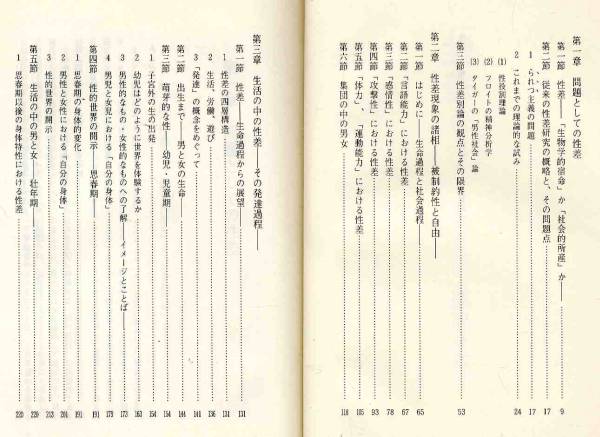 第一章 問題としての性差
第一節 性差——「生物学的宿命」か「社会的所産」か—— 9
第二節 従来の性差研究の概略と、その問題点 17
1 られつ主義の問題 17
2 これまでの理論的な試み 24
(1) 性役割理論
(2) フロイトの精神分析学
(3) タイガーの「男性社会」論
第三節 性差別論の観点とその限界 53
第二章 性差現象の諸相——被制約性と自由——
第一節 はじめに——生命過程と社会過程 65
第二節 「言語能力」における性差 67
第三節 「感情性」における性差 78
第四節 「攻撃性」における性差 93
第五節 「体力」、「運動能力」における性差 105
第六節 集団の中の男女 118
第三章 生活の中の性差——その発達過程——
第一節 性差——生命過程からの展望—— 131
1 性差の四層構造 131
2 生活、労働、遊び 136
3 「発達」の概念をめぐって 141
第二節 出生まで——男と女の生命 144
第三節 萌芽的な性——幼児・児童期—— 154
1 子宮外の生の出発 154
2 幼児はどのように世界を体験するか 163
3 男性的なもの・女性的なものへの了解——イメージとことば—— 173
4 男児と女児における「自分の身体」 179
第四節 性的世界の開示——思春期—— 191
1 思春期の身体的変化 191
2 男性と女性における「自分の身体」 201
3 性的世界の開示 213
第五節 生活の中の男と女——壮年期—— 220
1 思春期以後の身体特性における性差 220